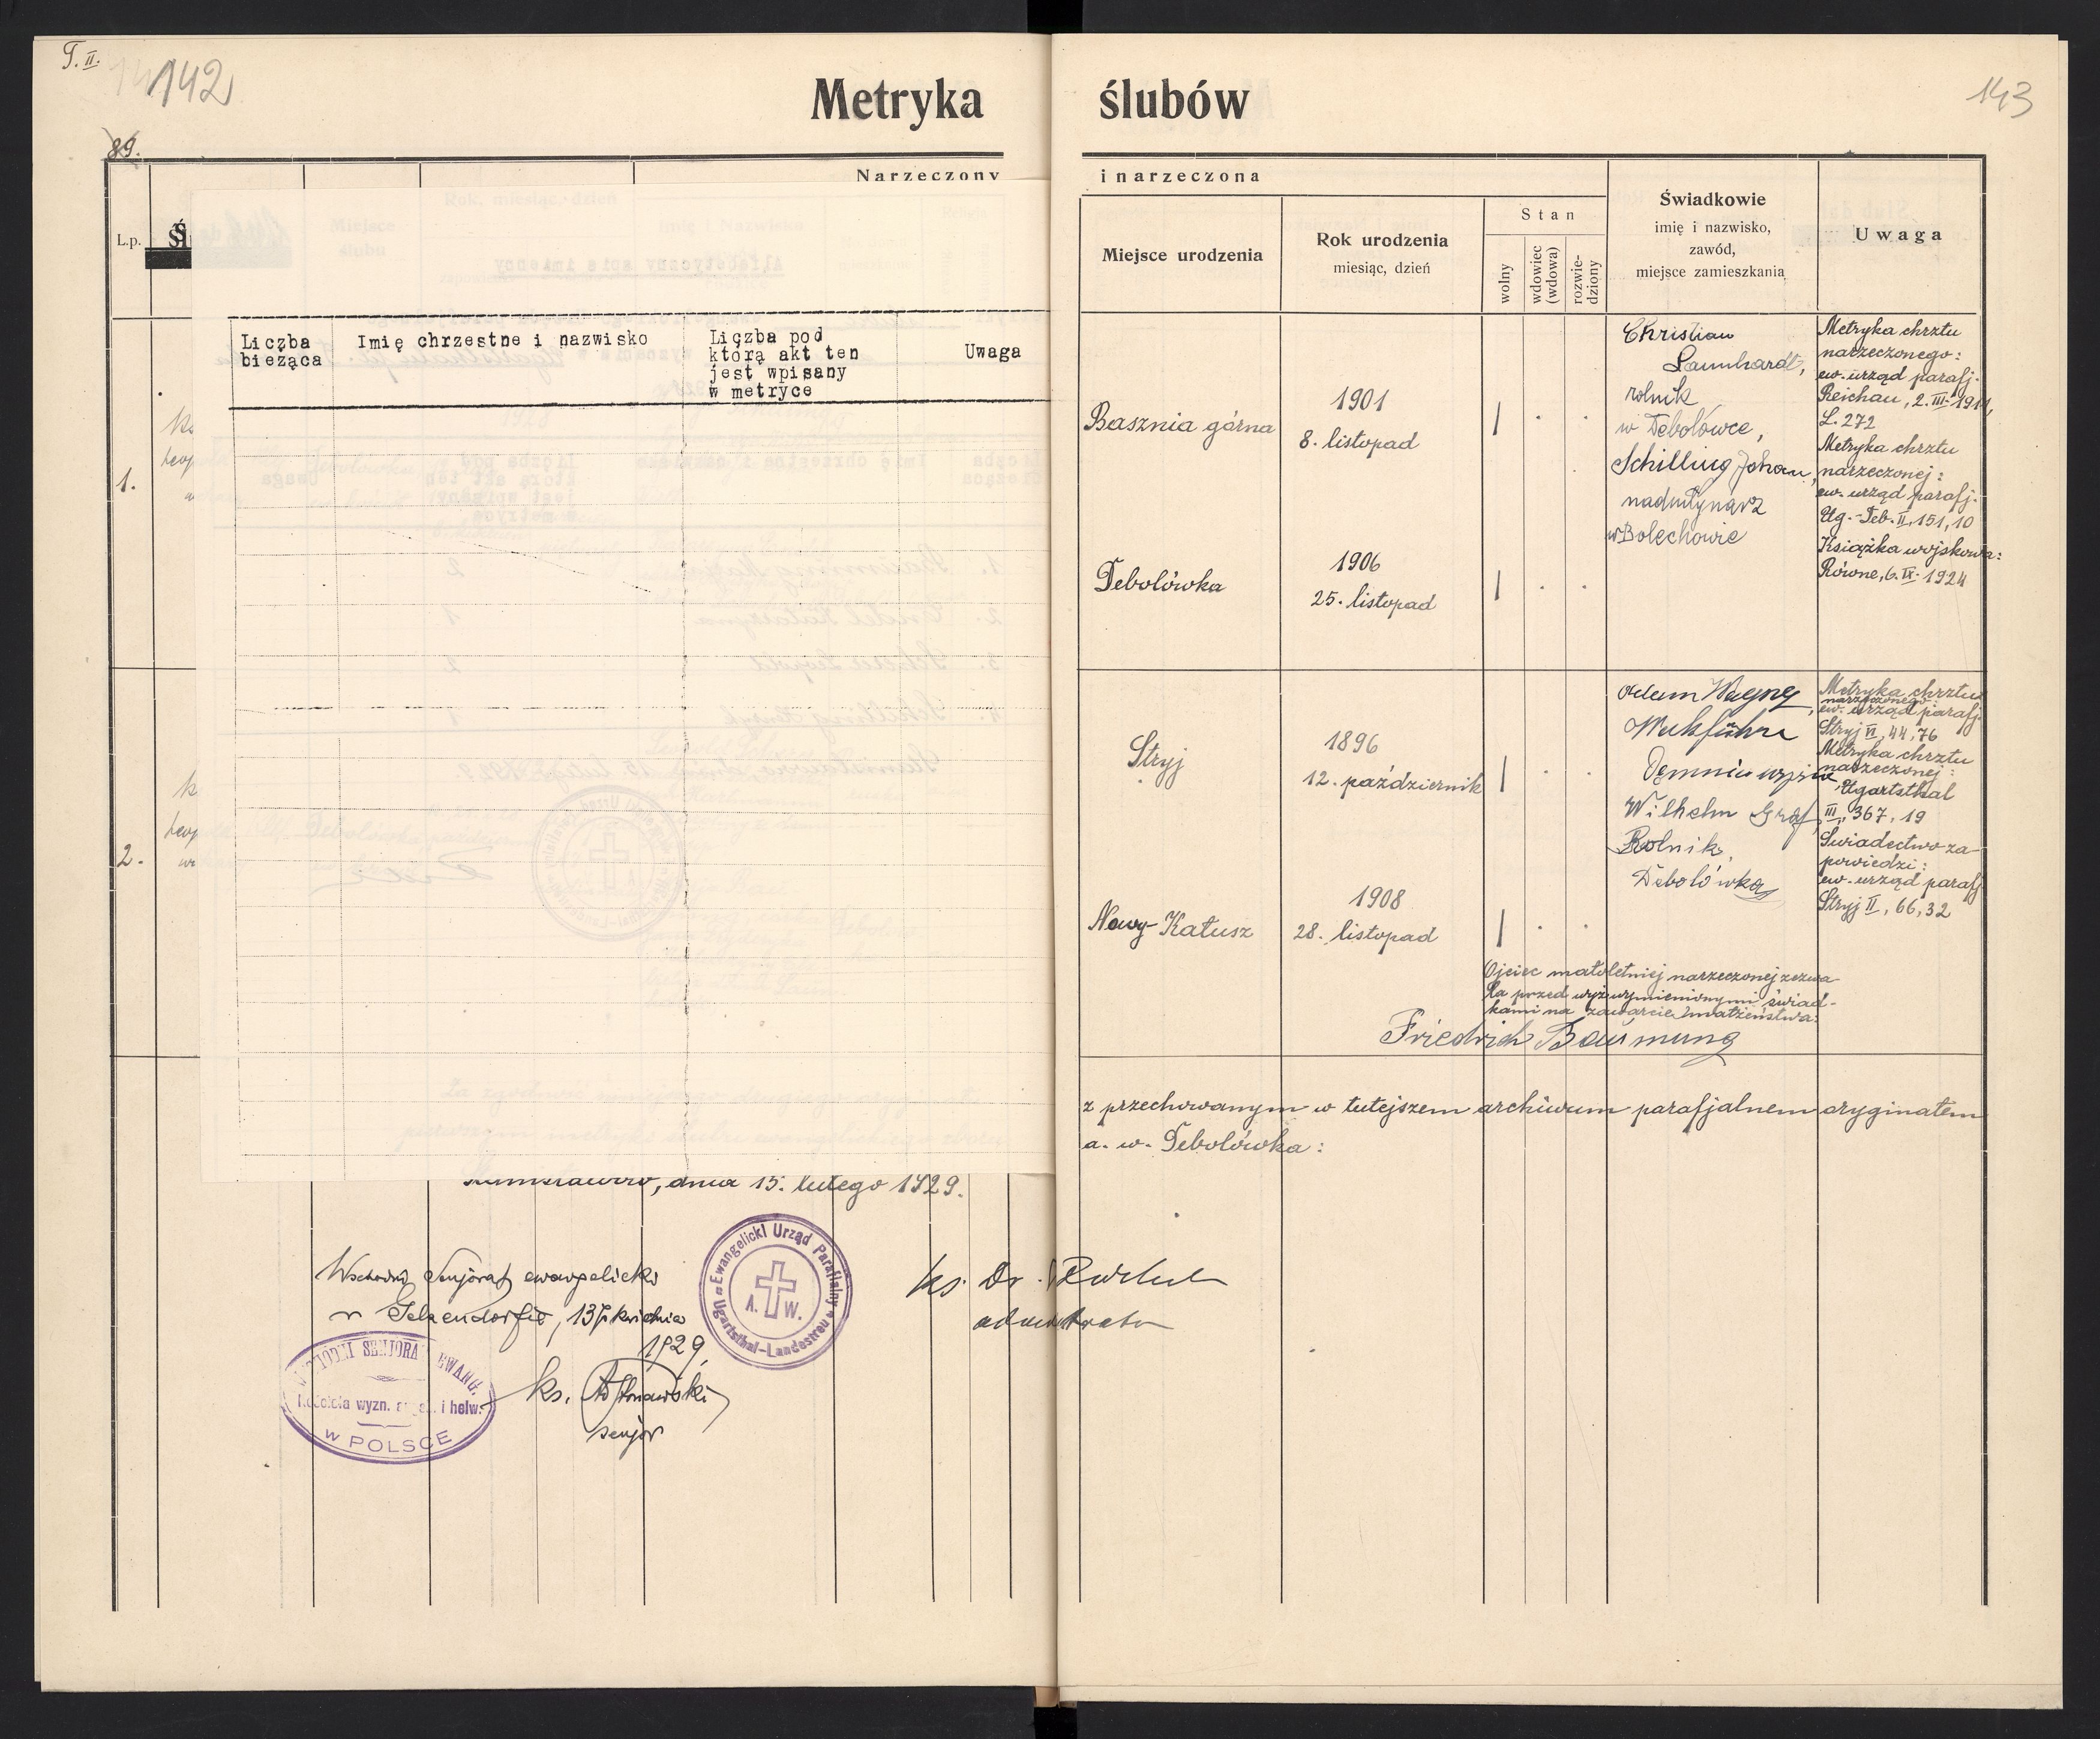 T. II.
142
143
Metryka ślubów
89.
Narzeczony i narzeczona
L.p.
Miejsce urodzenia
Rok urodzenia
miesiąc, dzień
Stan
wolny
wdowiec
(wdowa)
rozwie-
dziony
Świadkowie
imię i nazwisko,
zawód,
miejsce zamieszkania
Uwaga
Liczba
bieżąca
Imię chrzestne i nazwisko
Liczba pod
którą akt ten
jest wpisany
w metryce
Uwaga
1.
Basznia górna
1901
8. listopad
Debolówka
1906
25. listopad
Christian
Launhardt,
rolnik
w Debolówce,
Schilling Johan,
nadmłynarz
w Bolechowie
Metryka chrztu
narzeczonego:
ew. urząd parafj.
Reichau, 2. III. 1911,
L. 272
Metryka chrztu
narzeczonej:
ew. urząd parafj.
Ug.-Deb. II, 151, 10
Książka wojskowa:
Równe, 6. IX. 1924
2.
Stryj
1896
12. październik
Nowy-Kałusz
1908
28. listopad
Adam
Wilhelm Graf,
Rolnik,
Debolówka
Metryka chrztu
narzeczonego:
ew. urząd parafj.
Stryj VI, 44, 76
Metryka chrztu
narzeczonej:
Ugartsthal
III, 367, 19
Świadectwo za-
powiedzi:
ew. urząd parafj.
Stryj II, 66, 32
Ojciec małoletniej narzeczonej zezwa-
la przed wyżwymienionymi świad-
kami na zawarcie małżeństwa:
Friedrich Baumung
z przechowanym w tutejszem archiwum parafjalnem oryginałem
a. w. Debolówka:
dnia 15. lutego 1929.
Wschodni Senjorat ewangelicki
w Gelsendorfie, 13 kwietnia
1929
ks.
senjor
Ewangelicki Urząd Parafialny
Ugartsthal-Landestreu
A. W.
SENJORAT EWANG.
Kościoła wyzn. i helw.
w POLSCE
ks. Dr.